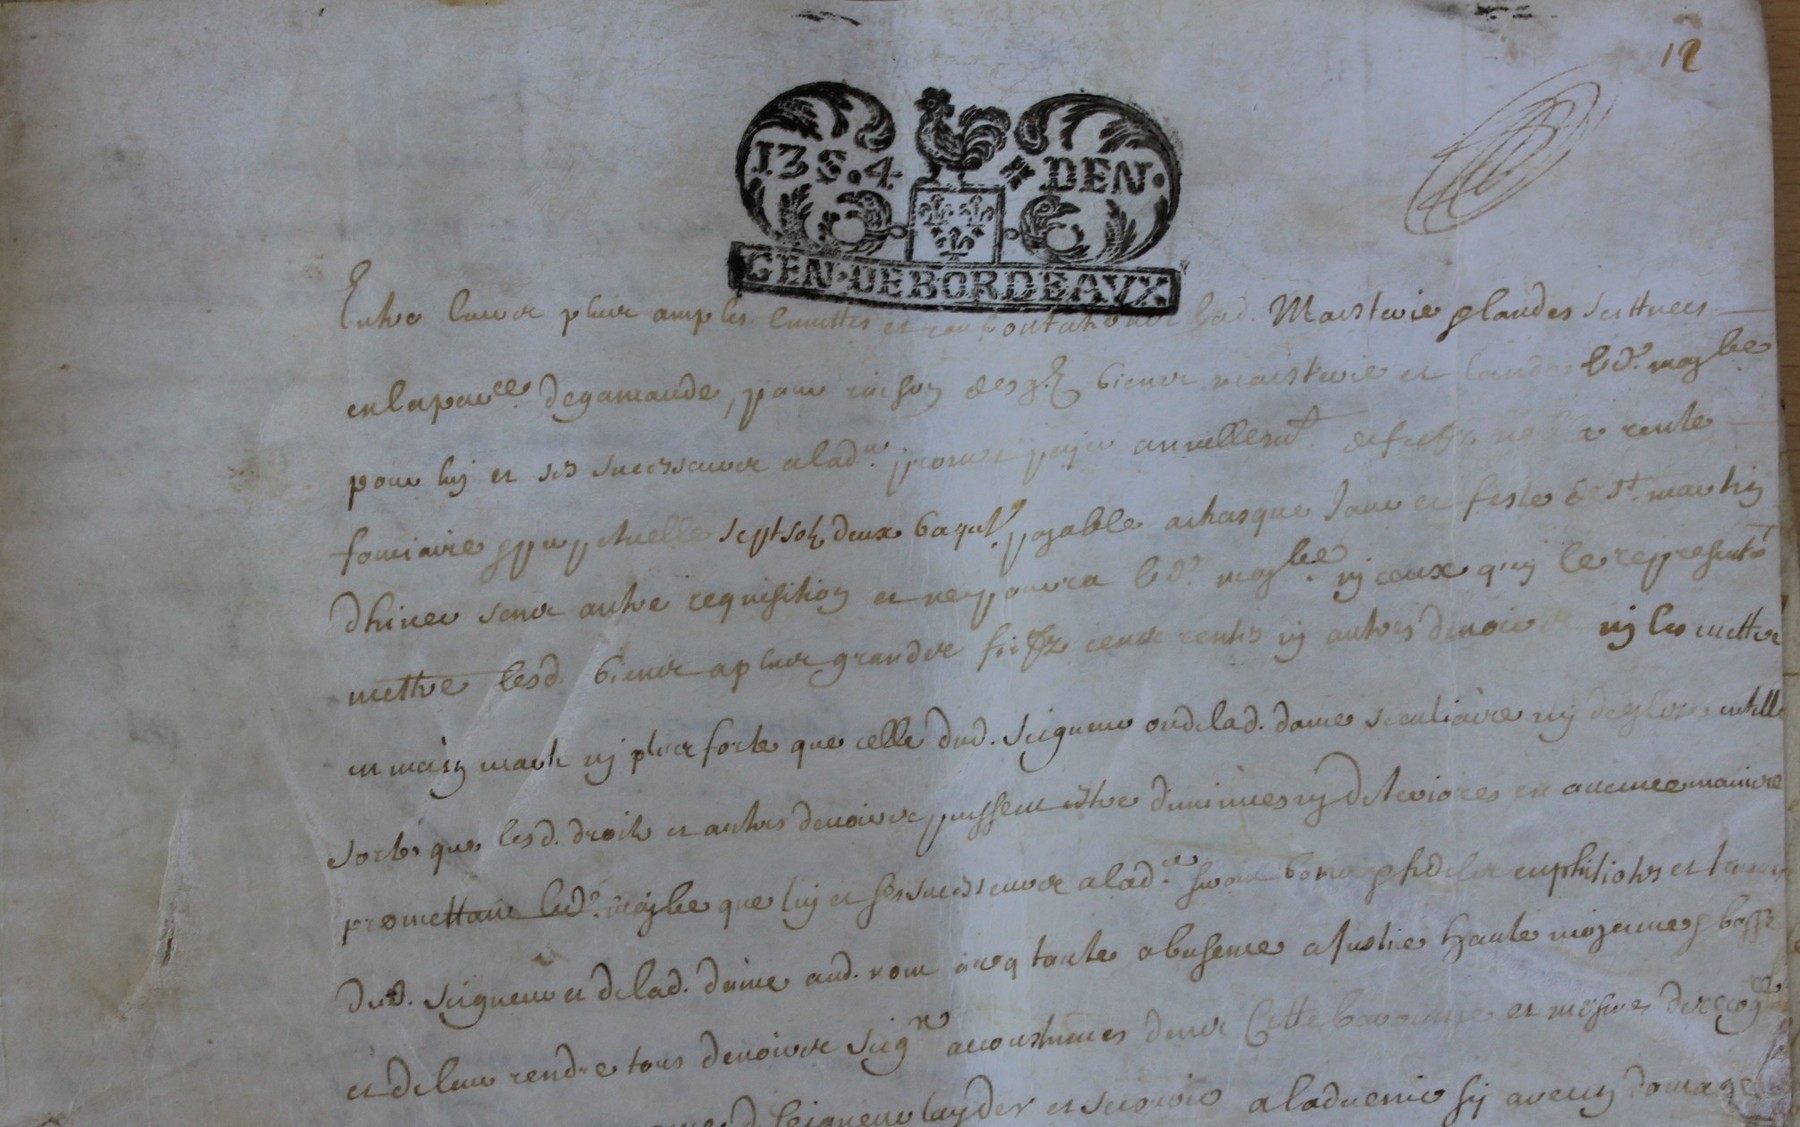 12
13 S. 4 DEN.
GEN. DE BORDEAVX
Entre leurs plus amples limittes et confrontations lad. Maisterie & landes scittuees
en la parce. de gamarde, pour raison desqls biens maisterie et landes led. maylie
pour luy et ses successeurs alad. promet payer annuellemt. de fiefz rente
fonciaire & perpetuelle sept solz deux baquts. payable achasque Jour et feste de St. martin
dhiver sans autre requisition et ne pourra led. maylie ny ceux quy le representt
mettre lesd. biens a plus grands fiefz cens rentes ny autres devoirs ny les mettre
en main mort ny plus forte que celle dud. seigneur ou de lad. dame seculiaire ny deglize en telle
sorte que lesd. droitz et autres devoirs puissent estre diminues ny deteriores en aucune maniere
promettant led. maylie que luy et ses successeurs alad. seront bons & fidelles emphitiotes et
dud. seigneur et de lad. dame aud. nom avoq toute obeisence a Justice haute moyenne & basse
et de leur rendre tous devoirs seigrx acoustumes dans cette baronnie et mesmes de
seigneur layder et secourir a ladvenir sy aveuq domage